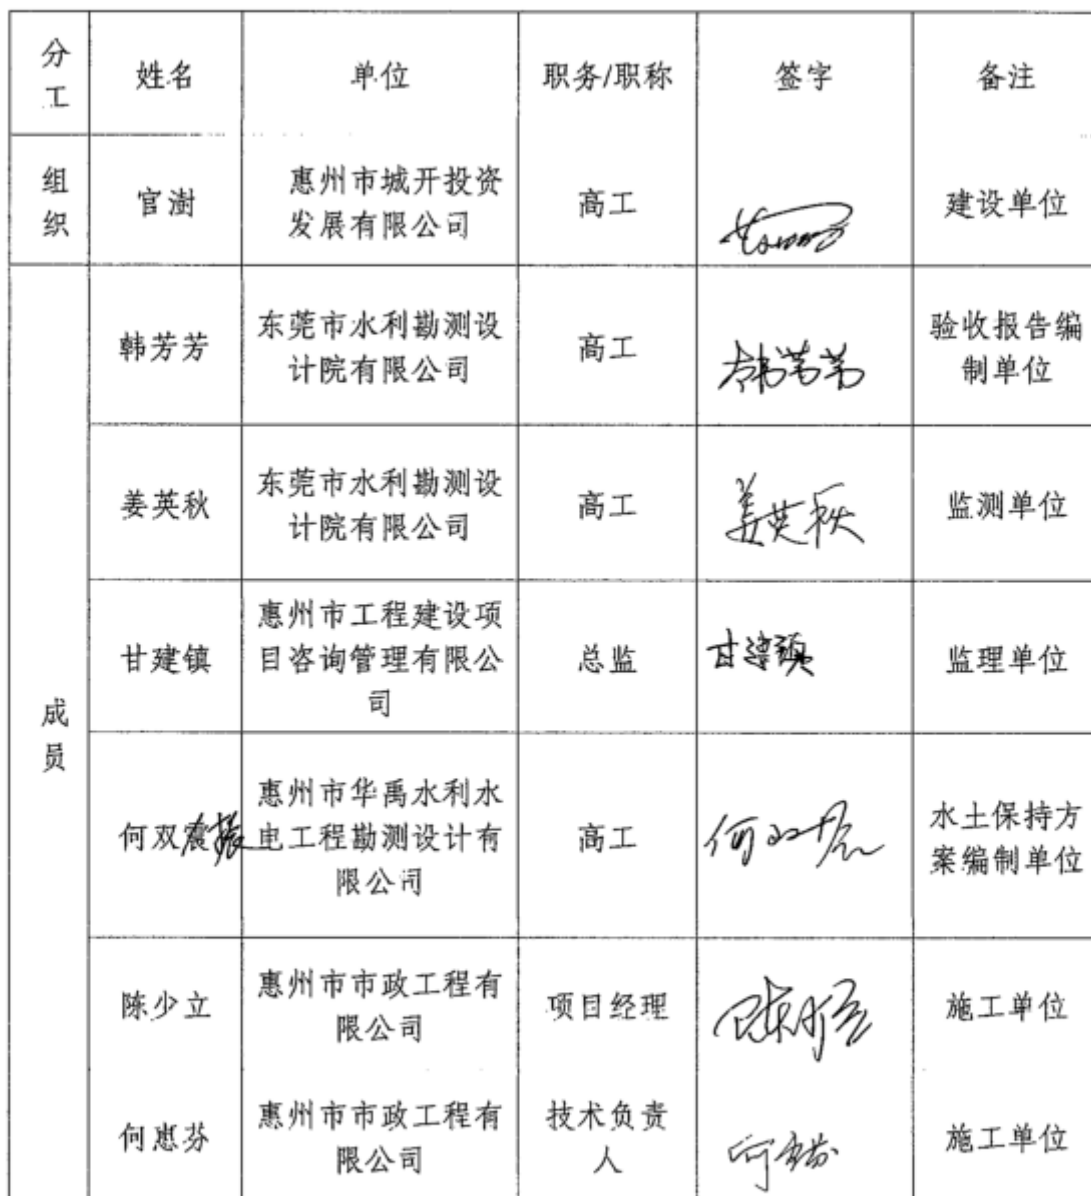 分
工
姓名
单位
职务/职称
签字
备注
组
织
官澍
惠州市城开投资
发展有限公司
高工
建设单位
成
员
韩芳芳
东莞市水利勘测设
计院有限公司
高工
韩芳芳
验收报告编
制单位
姜英秋
东莞市水利勘测设
计院有限公司
高工
姜英秋
监测单位
甘建镇
惠州市工程建设项
目咨询管理有限公
司
总监
甘建镇
监理单位
何双震振
惠州市华禹水利水
电工程勘测设计有
限公司
高工
何双振
水土保持方
案编制单位
陈少立
惠州市市政工程有
限公司
项目经理
陈少立
施工单位
何惠芬
惠州市市政工程有
限公司
技术负责
人
何惠芬
施工单位